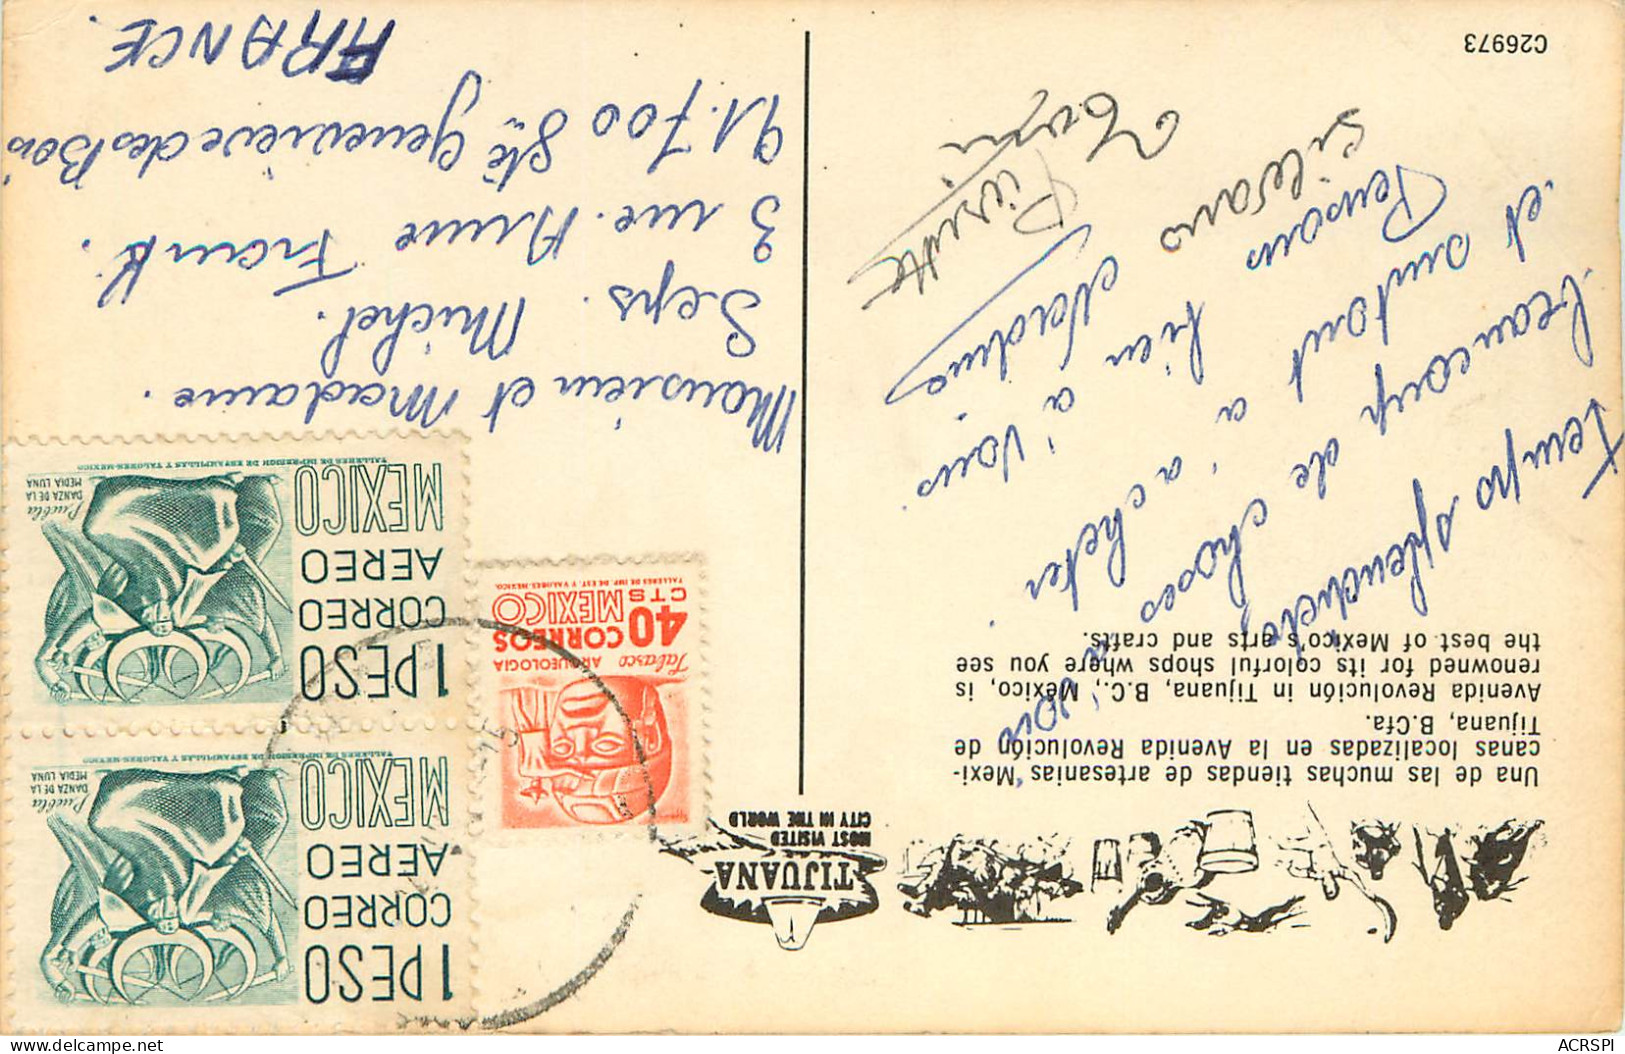 TIJUANA
MOST VISITED
CITY IN THE WORLD
Una de las muchas tiendas de artesanias Mexi-
canas localizadas en la Avenida Revolución de
Tijuana, B.Cfa.
Avenida Revolución in Tijuana, B.C., México, is
renowned for its colorful shops where you see
the best of Mexico's arts and crafts.
Temps splendide,
beaucoup de choses à voir
et surtout à acheter
Pensons bien à Vous.
silvano
Pierrette
C26973
1 PESO
CORREO
AEREO
MEXICO
Puebla
DANZA DE LA
MEDIA LUNA
TALLERES DE IMPRESION DE ESTAMPILLAS Y VALORES-MEXICO
1 PESO
CORREO
AEREO
MEXICO
Puebla
DANZA DE LA
MEDIA LUNA
TALLERES DE IMPRESION DE ESTAMPILLAS Y VALORES-MEXICO
Tabasco ARQUEOLOGIA
40 CORREOS
CTS MEXICO
TALLERES DE IMP. DE EST. Y VALORES-MEXICO
Monsieur et Madame.
Seps. Michel.
3 rue. Anne Frank.
91.700 Ste Geneviève des Bois
FRANCE.
ACRSPI